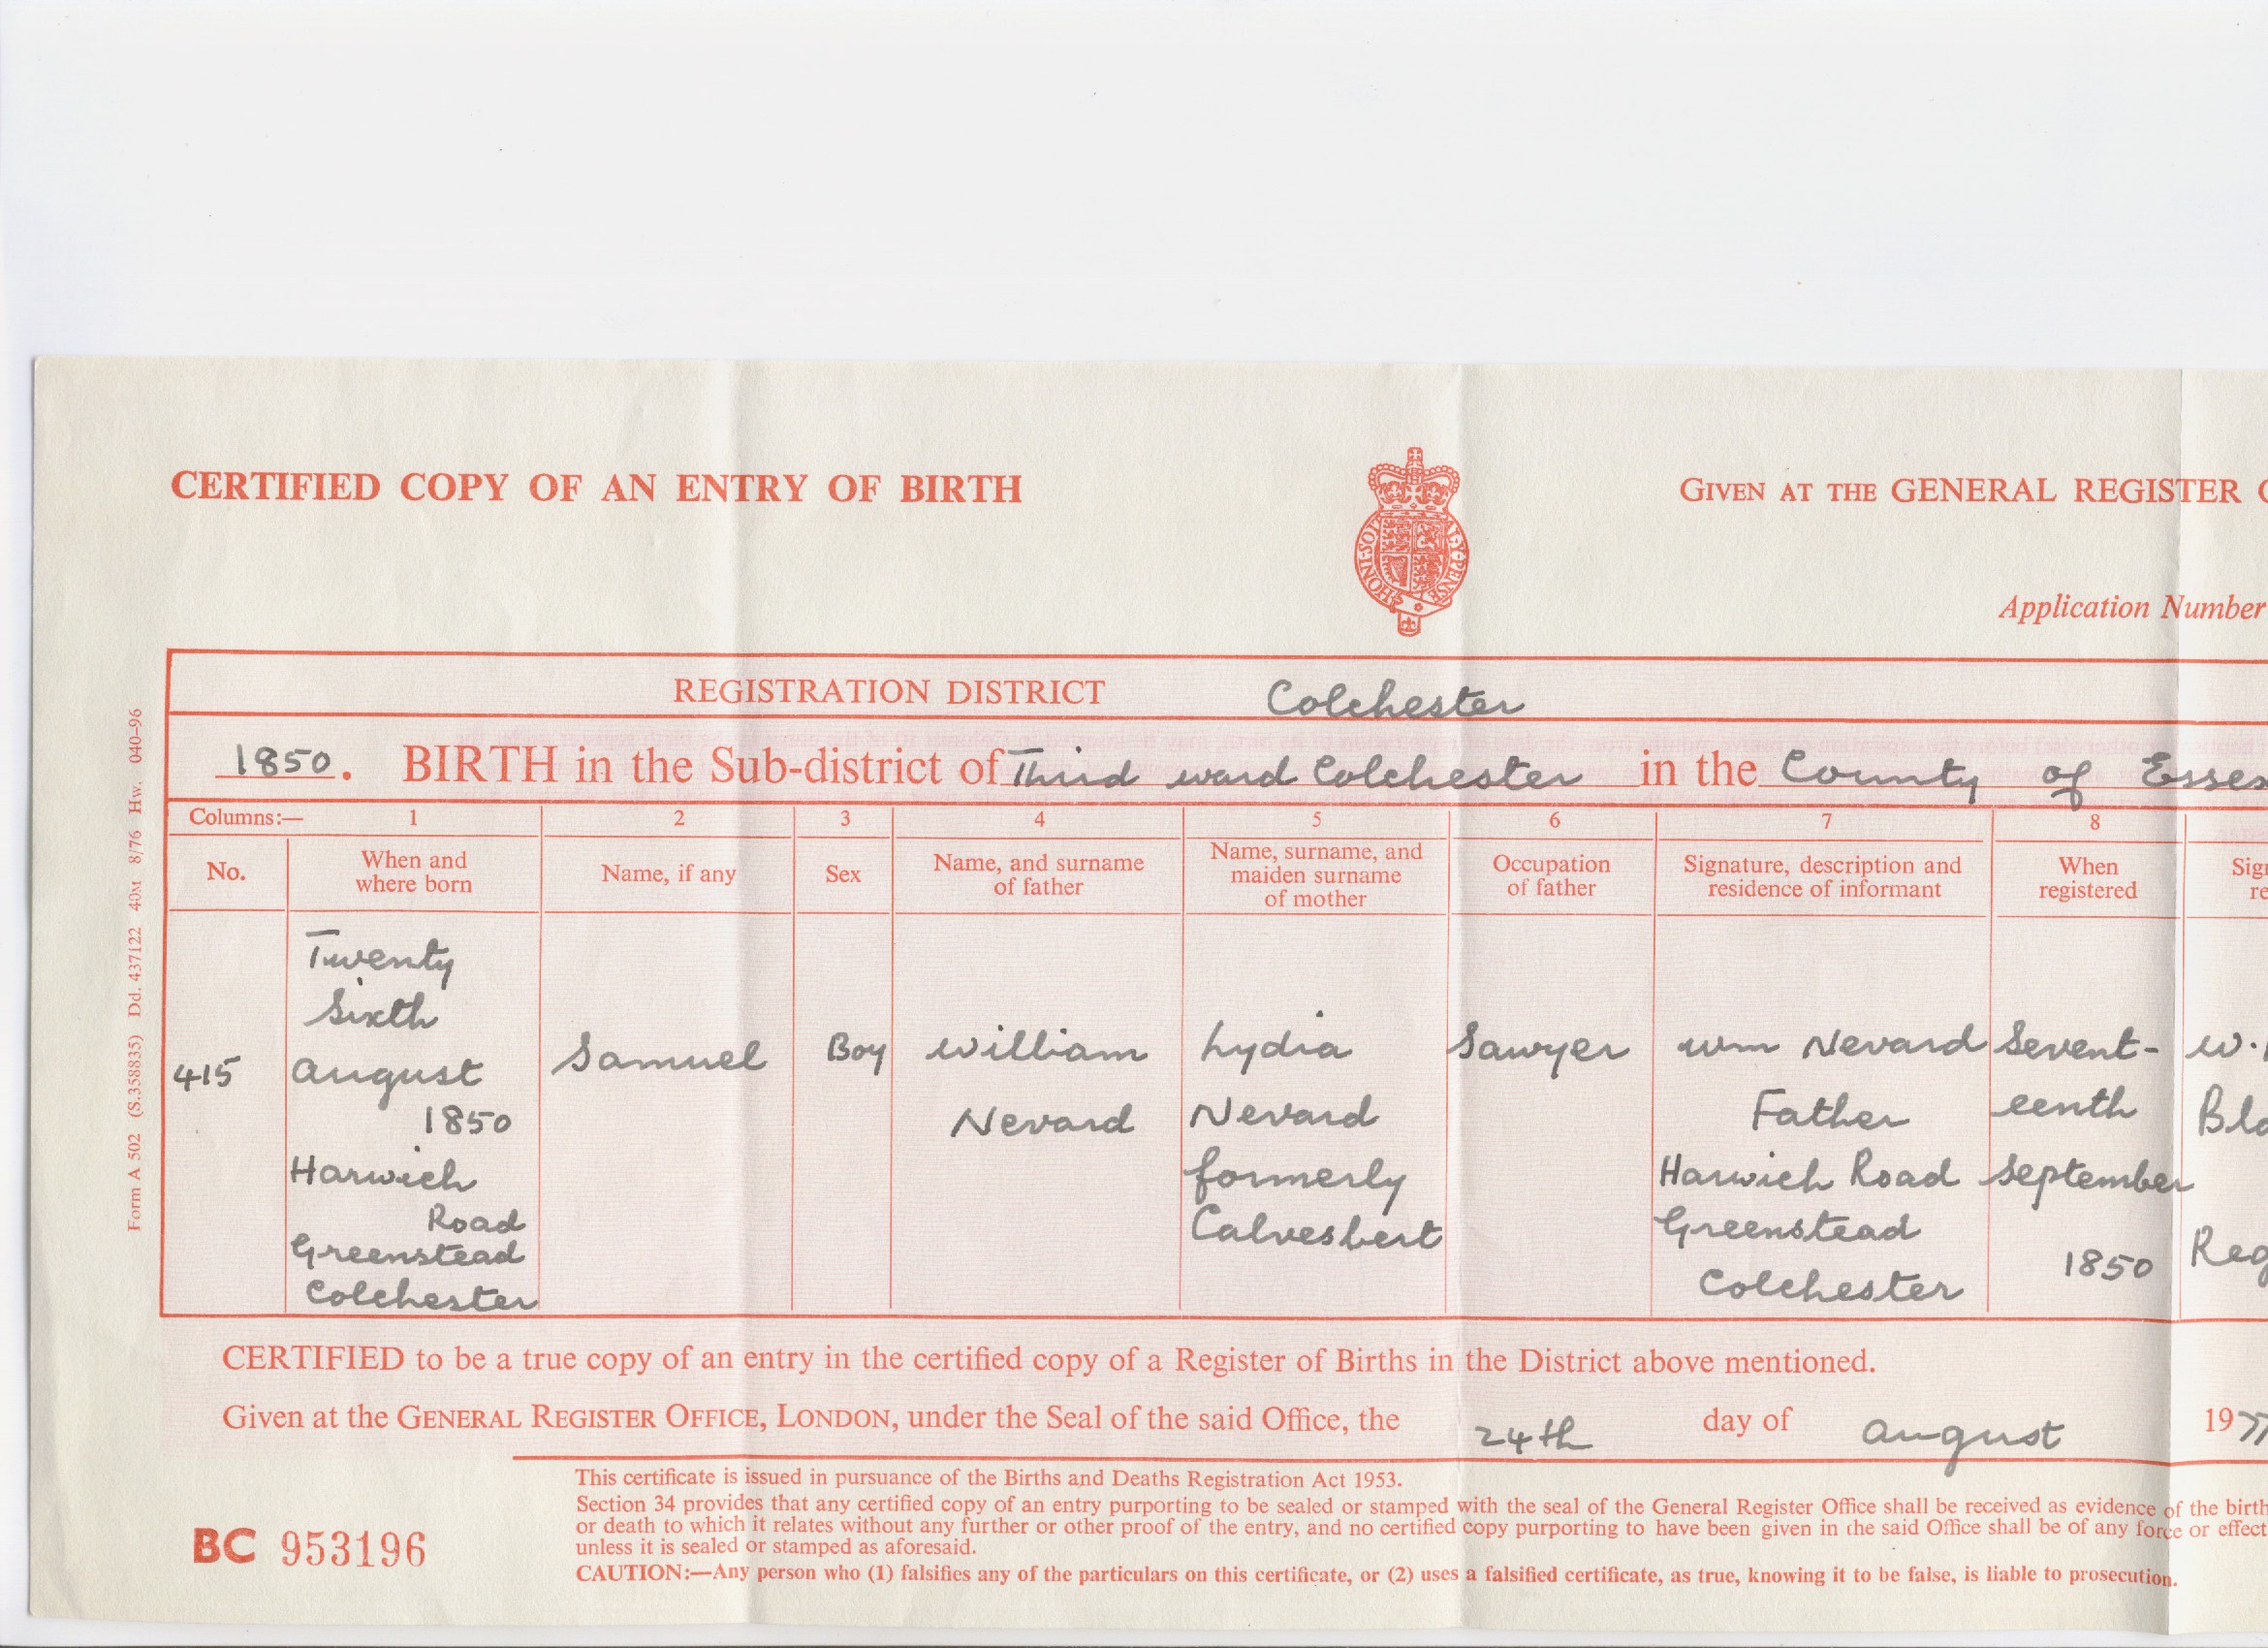 CERTIFIED COPY OF AN ENTRY OF BIRTH
HONI·SOIT
MAL·Y·PENSE
GIVEN AT THE GENERAL REGISTER
Application Number
REGISTRATION DISTRICT Colchester
1850. BIRTH in the Sub-district of Third ward Colchester in the County of Essex
Columns:— 1 2 3 4 5 6 7 8
No.
When and
where born
Name, if any
Sex
Name, and surname
of father
Name, surname, and
maiden surname
of mother
Occupation
of father
Signature, description and
residence of informant
When
registered
415
Twenty
Sixth
August
1850
Harwich
Road
Greenstead
Colchester
Samuel
Boy
William
Nevard
Lydia
Nevard
formerly
Calvesbert
Sawyer
Wm Nevard
Father
Harwich Road
Greenstead
Colchester
Sevent-
eenth
September
1850
W.
CERTIFIED to be a true copy of an entry in the certified copy of a Register of Births in the District above mentioned.
Given at the GENERAL REGISTER OFFICE, LONDON, under the Seal of the said Office, the 24th day of August 1977
This certificate is issued in pursuance of the Births and Deaths Registration Act 1953.
Section 34 provides that any certified copy of an entry purporting to be sealed or stamped with the seal of the General Register Office shall be received as evidence of the birth
or death to which it relates without any further or other proof of the entry, and no certified copy purporting to have been given in the said Office shall be of any force or effect
unless it is sealed or stamped as aforesaid.
CAUTION:—Any person who (1) falsifies any of the particulars on this certificate, or (2) uses a falsified certificate, as true, knowing it to be false, is liable to prosecution.
BC 953196
Form A 502 (S.358835) Dd. 437122 40M 8/76 Hw. 040-96